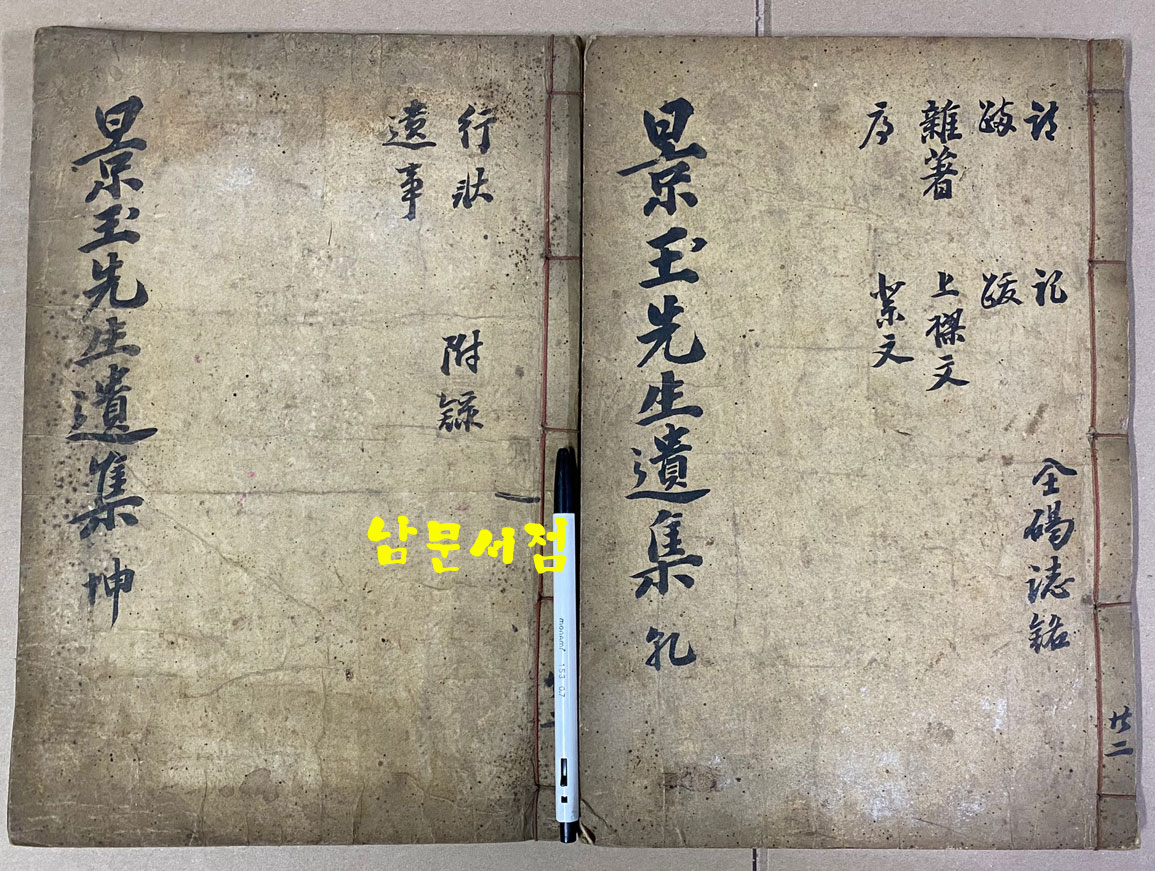 詩 記
䟽 跋
雜著 上樑文
序 祭文
碣誌銘
景玉先生遺集 乾
共二
行狀 附錄
遺事
景玉先生遺集 坤
남문서점
monami 153 0.7